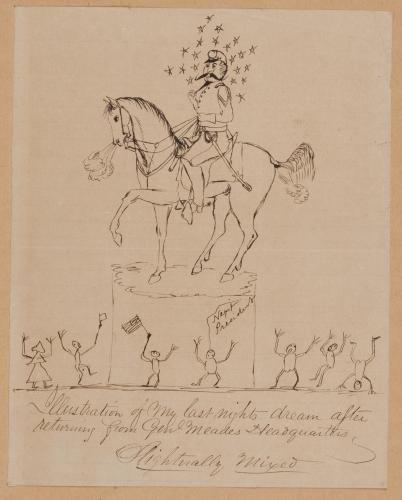 Next
President
Illustration of My last nights dream after
returning from Genl Meades Headquarters,
Slightually Mixed